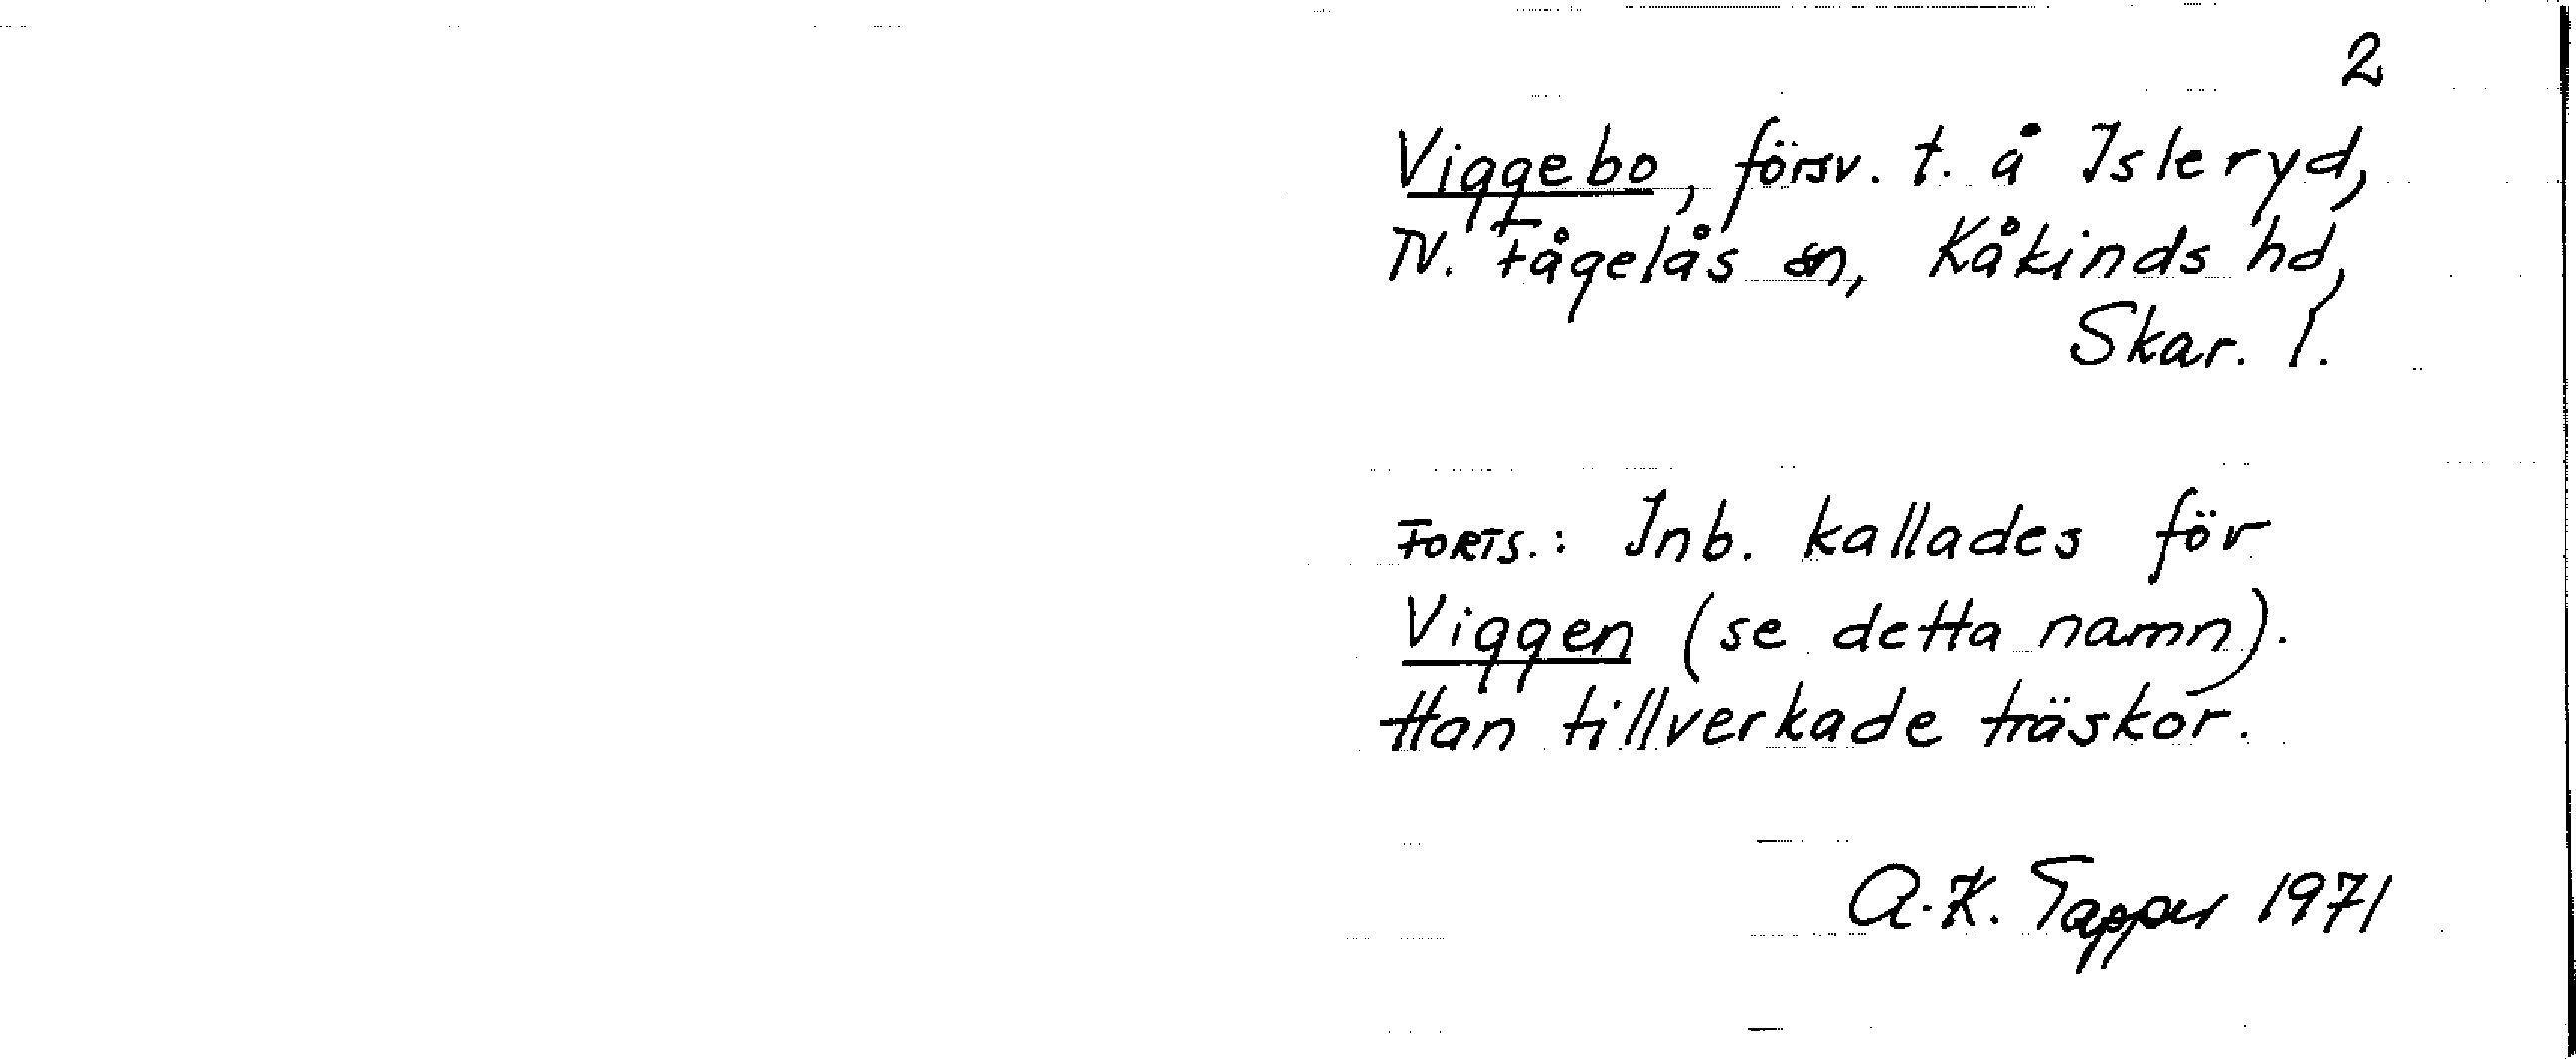 2
Viggebo, försv. t. å Isleryd,
N. Fågelås sn, Kåkinds hd,
Skar. l.
FORTS.: Inb. kallades för
Viggen (se detta namn).
Han tillverkade träskor.
A.-K. Tapper 1971